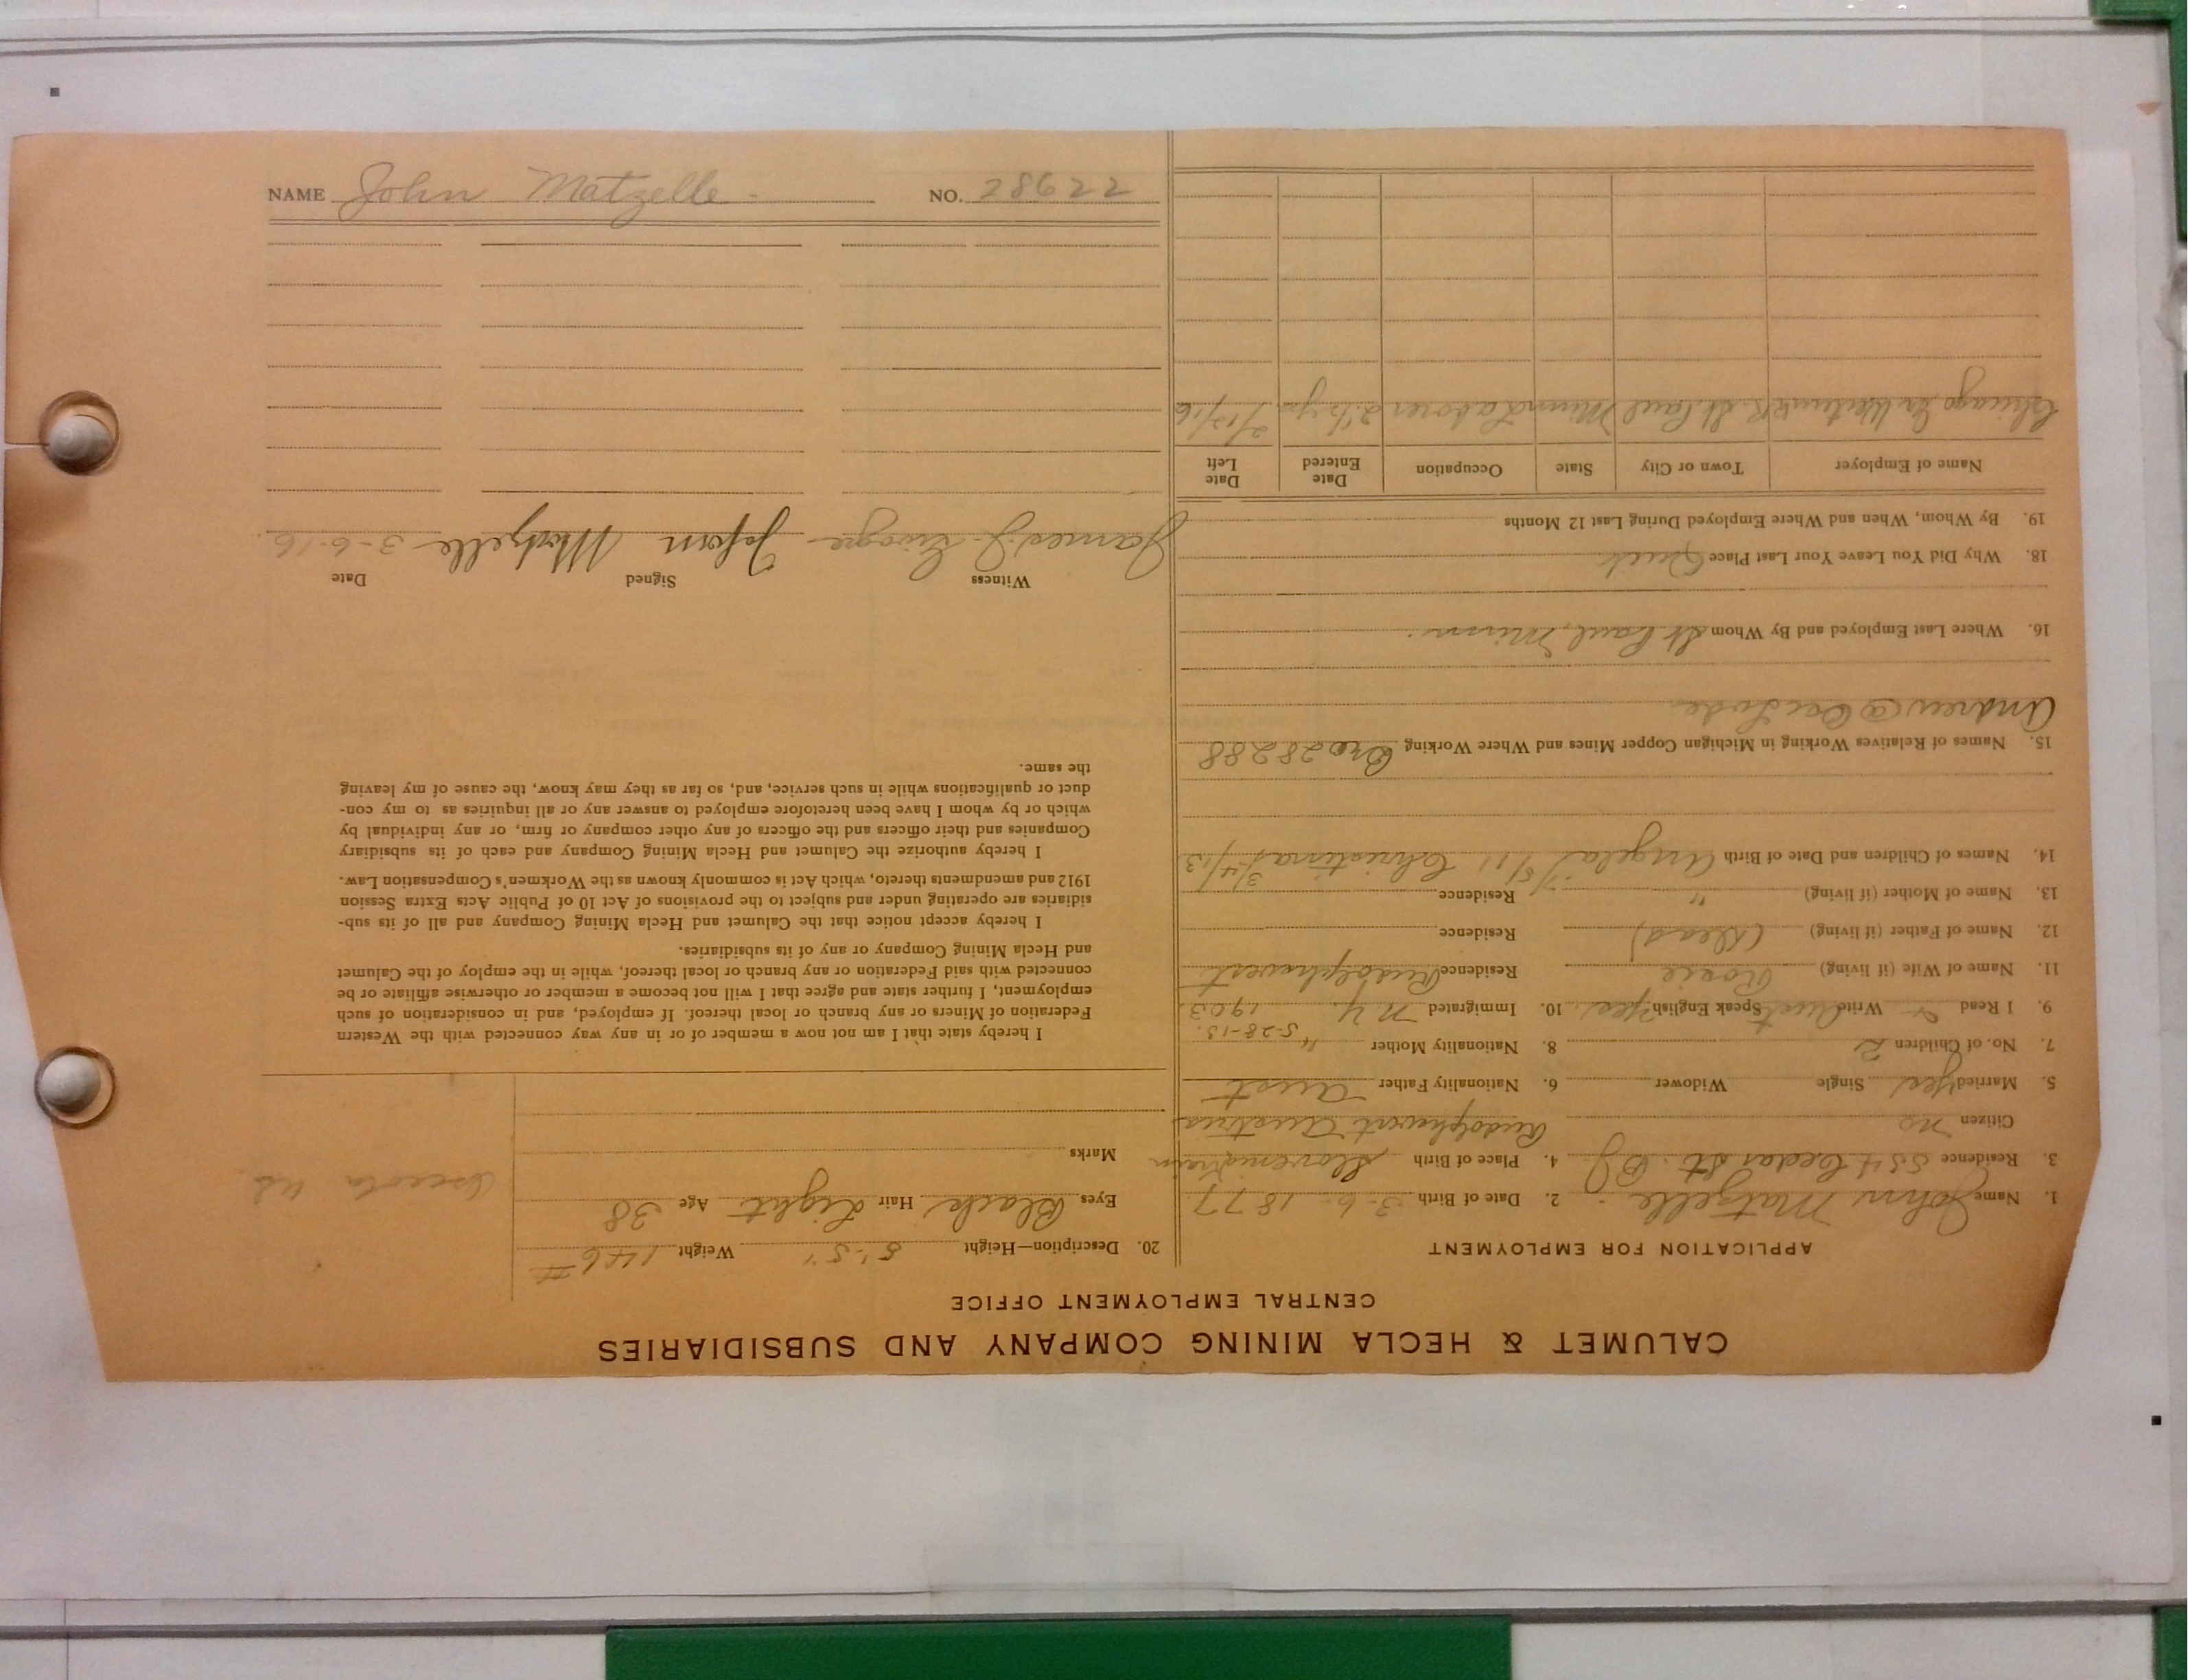 CALUMET & HECLA MINING COMPANY AND SUBSIDIARIES
CENTRAL EMPLOYMENT OFFICE
APPLICATION FOR EMPLOYMENT
1. Name John Matzelle 2. Date of Birth 3-6-1877
3. Residence 554 Cedar St. 4. Place of Birth
Citizen no Rudolphswert Austria
5. Married Yes Single Widower 6. Nationality Father Aust
7. No. of Children 2 8. Nationality Mother "
5-28-13.
9. I Read Write Aust Speak English Yes. 10. Immigrated N.Y. 1903
11. Name of Wife (if living) Rosie Residence Rudolphswert
12. Name of Father (if living) (Dead) Residence
13. Name of Mother (if living) " Residence
14. Names of Children and Date of Birth Angela Christina 3/4/13
15. Names of Relatives Working in Michigan Copper Mines and Where Working Bro 28288
Andrew @
16. Where Last Employed and By Whom St Paul, Minn.
18. Why Did You Leave Your Last Place Quit
19. By Whom, When and Where Employed During Last 12 Months
Name of Employer Town or City State Occupation Date Entered Date Left
Chicago Gr Western R. St. Paul Minn Laborer
20. Description—Height 5'-5" Weight 146#
Eyes Black Hair Light Age 38
Marks
Osceola
I hereby state that I am not now a member of or in any way connected with the Western
Federation of Miners or any branch or local thereof. If employed, and in consideration of such
employment, I further state and agree that I will not become a member or otherwise affiliate or be
connected with said Federation or any branch or local thereof, while in the employ of the Calumet
and Hecla Mining Company or any of its subsidiaries.
I hereby accept notice that the Calumet and Hecla Mining Company and all of its sub-
sidiaries are operating under and subject to the provisions of Act 10 of Public Acts Extra Session
1912 and amendments thereto, which Act is commonly known as the Workmen's Compensation Law.
I hereby authorize the Calumet and Hecla Mining Company and each of its subsidiary
Companies and their officers and the officers of any other company or firm, or any individual by
which or by whom I have been heretofore employed to answer any or all inquiries as to my con-
duct or qualifications while in such service, and, so far as they may know, the cause of my leaving
the same.
Witness Signed Date
James J. John Matzelle 3-6-16.
NAME John Matzelle NO. 28622